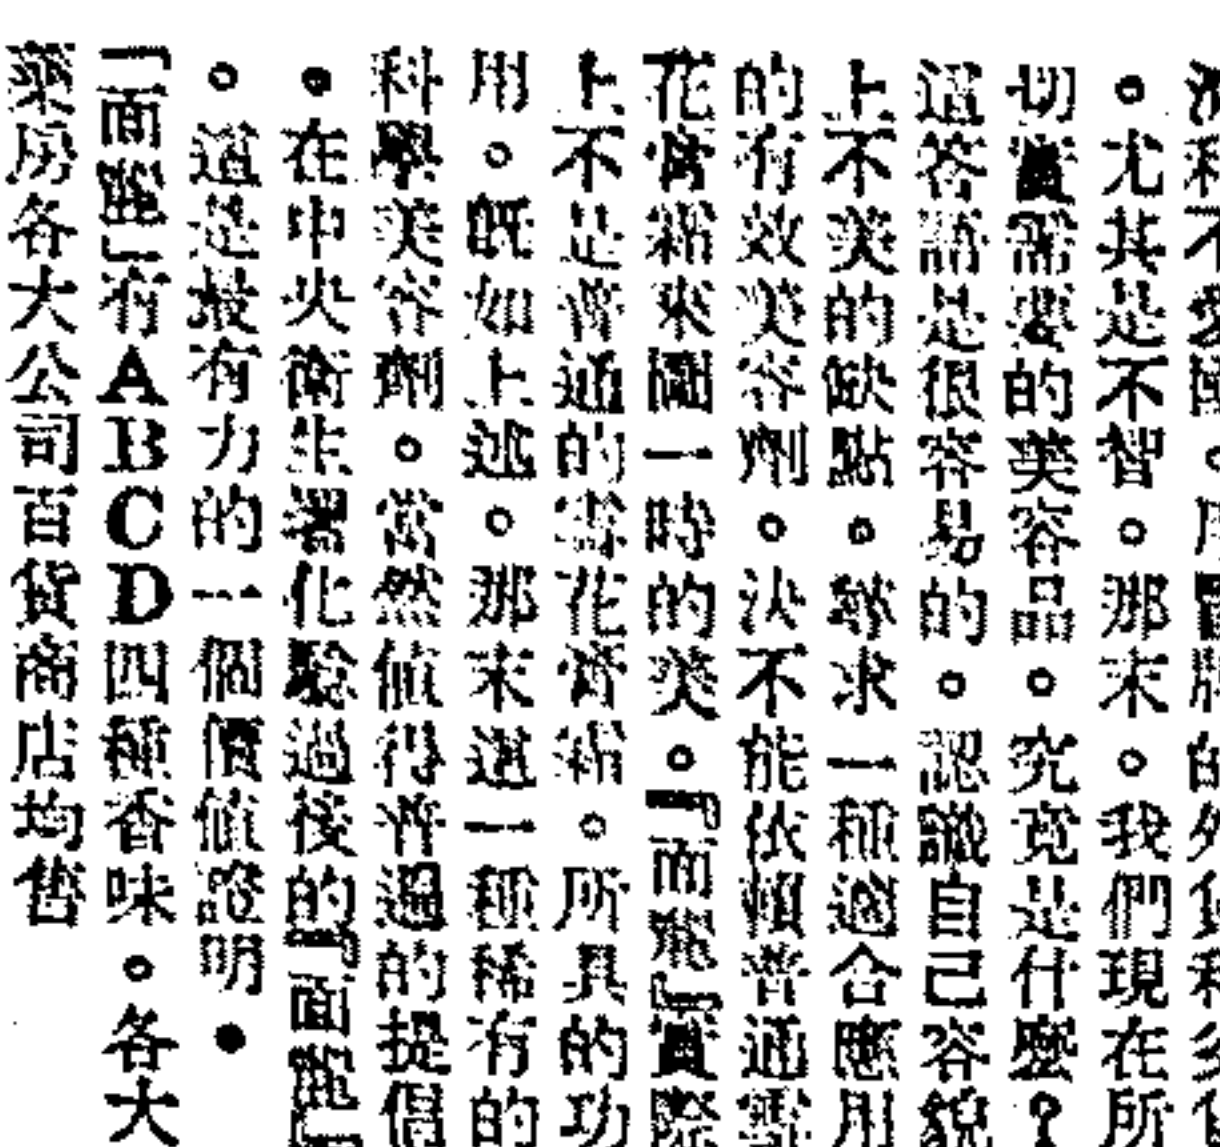 。尤其是不智。那末。我們現在所
切實需要的美容品。究竟是什麼?
這答語是很容易的。認識自己容貌
上不美的缺點。尋求一種適合應用
的有效美容劑。決不能依賴普通雪
花膏霜來圖一時的美。『面麗』實際
上不是普通的雪花膏霜。所具的功
用。旣如上述。那末這一種稀有的
科學美容劑。當然値得普遍的提倡
。在中央衛生署化驗過後的『面麗』
。這是最有力的一個價値證明。
『面麗』有ABCD四種香味。各大
藥房各大公司百貨商店均售